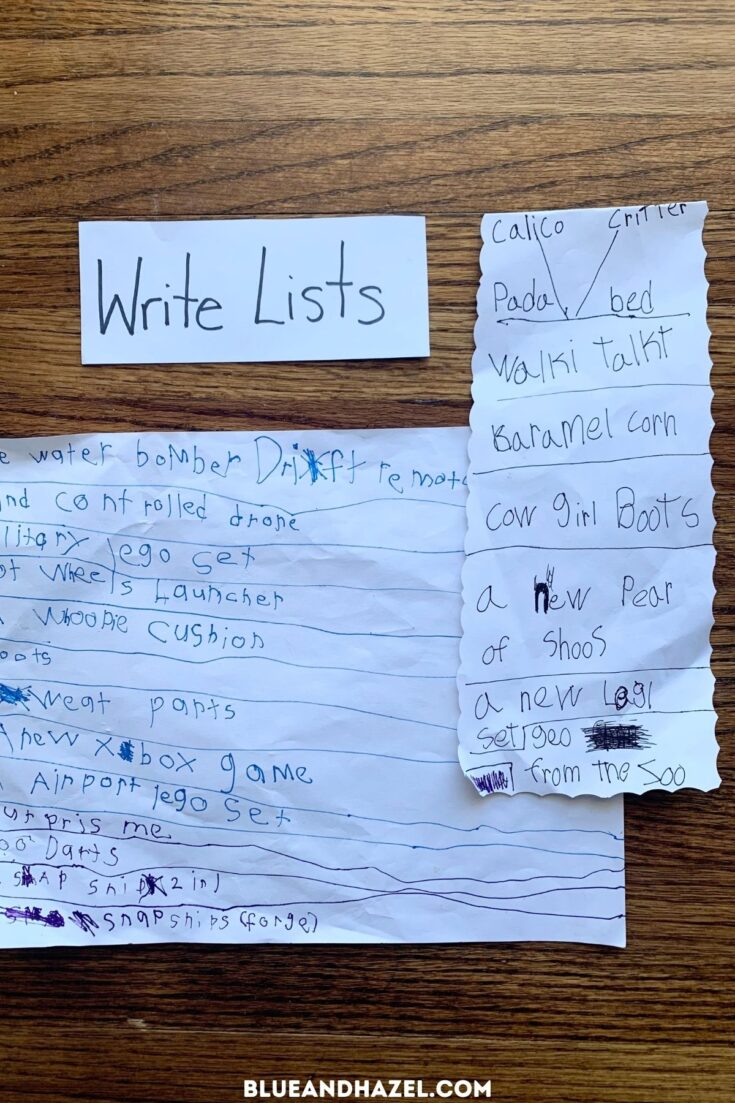 Write Lists
Calico Critter
Pada bed
Walki talki
Karamel corn
cow girl Boots
a new Pear
of shoos
a new Legi
set/geo
from the Soo
e water bomber Drift remot
nd controlled drone
litary lego set
ot wheels Launcher
Whoopie Cushion
oots
weat pants
A new xbox game
Airport lego set
urpris me
00 Darts
snap ship 2 in 1
snap ships (forge)
BLUEANDHAZEL.COM